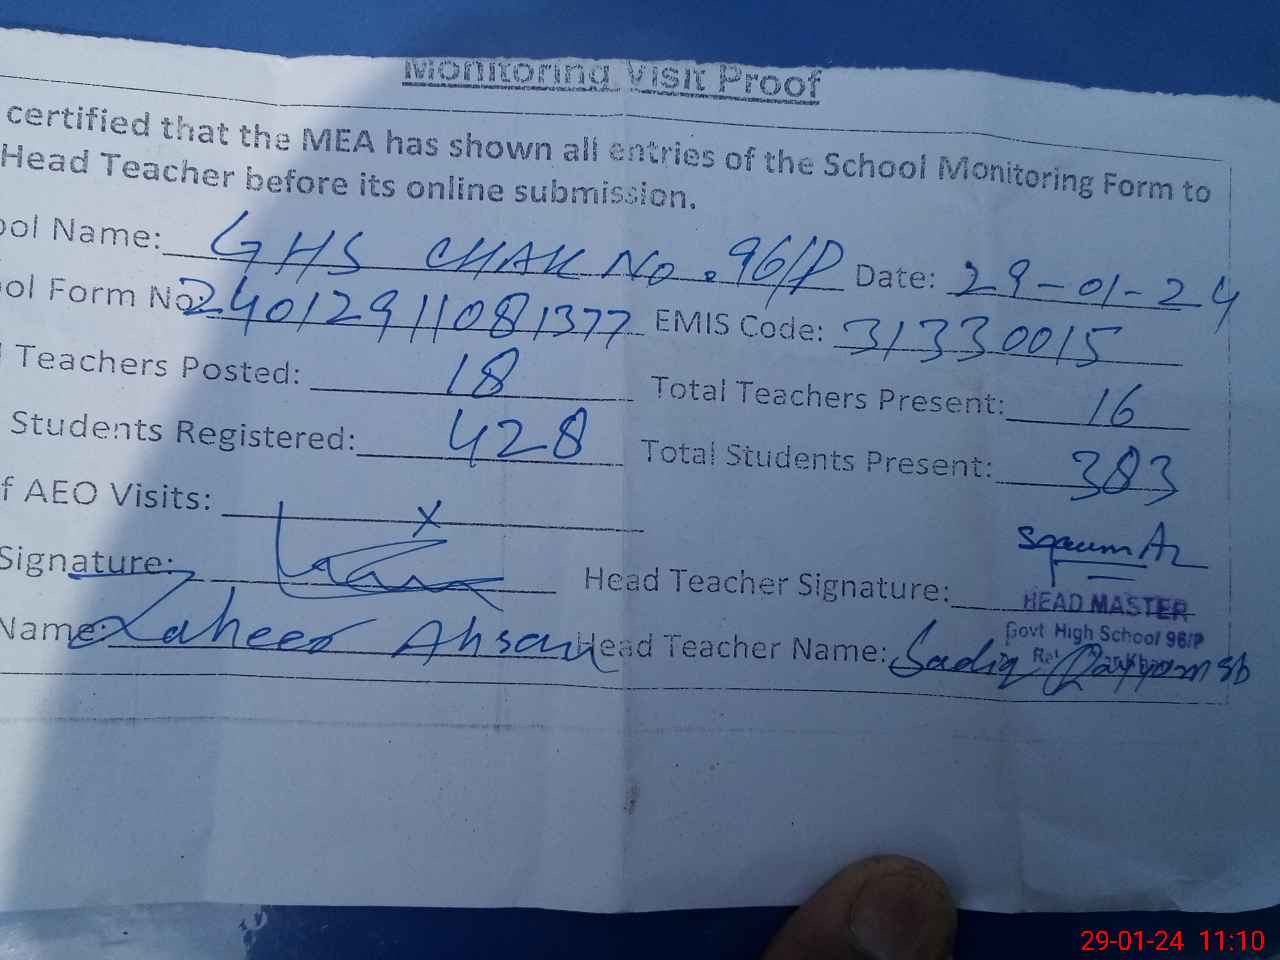 Monitoring Visit Proof
certified that the MEA has shown all entries of the School Monitoring Form to
Head Teacher before its online submission.
ool Name: GHS CHAK No. 96/P Date: 29-01-24
ool Form No: 24012911081377 EMIS Code: 31330015
l Teachers Posted: 18 Total Teachers Present: 16
Students Registered: 428 Total Students Present: 383
f AEO Visits: X
Signature: Head Teacher Signature:
HEAD MASTER
Govt High School 96/P
Name: Zaheer Ahsan Head Teacher Name: Sadiq Qayyom sb
29-01-24 11:10